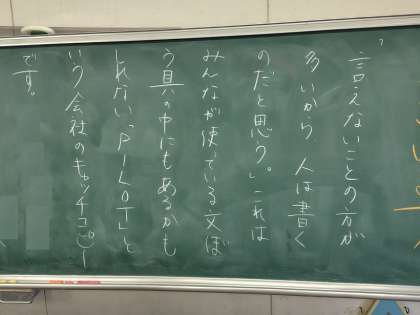 「言えないことの方が
多いから 人は書く
のだと思う。」これは
みんなが使っている文ぼ
う具の中にもあるかも
しれない「PILOT」と
いう会社のキャッチコピー
です。